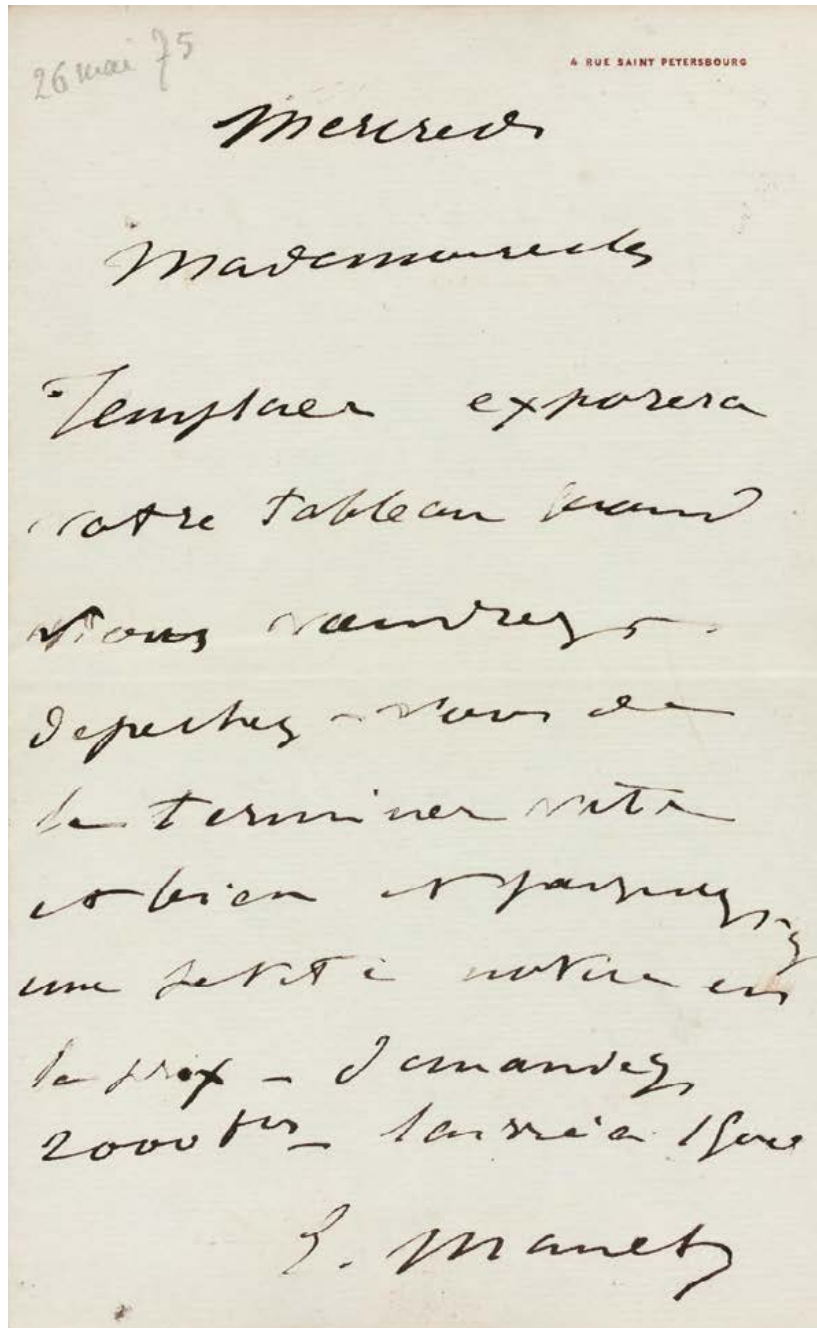 26 mai 75
4 RUE SAINT PETERSBOURG
Mercredi
Mademoiselle
Templaer exposera
votre tableau quand
vous voudrez -
depechez-vous de
le terminer vite
et bien et
une petite notice
le prix - demandez
2000 frs - laissé à 1500
E. Manet